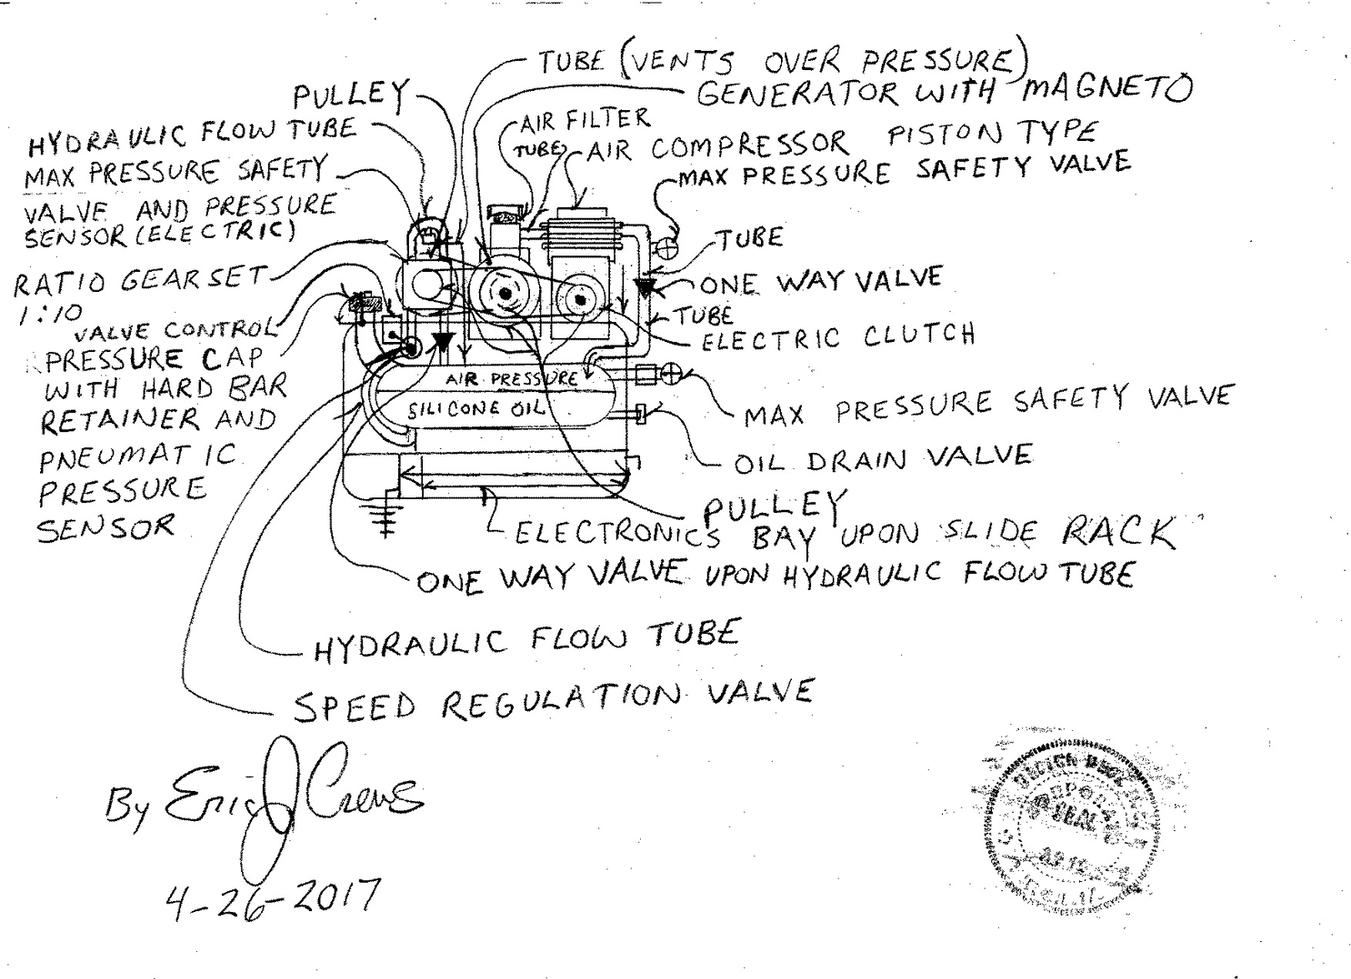 TUBE (VENTS OVER PRESSURE)
GENERATOR WITH MAGNETO
PULLEY
HYDRAULIC FLOW TUBE
AIR FILTER
TUBE
AIR COMPRESSOR PISTON TYPE
MAX PRESSURE SAFETY VALVE
MAX PRESSURE SAFETY
VALVE AND PRESSURE
SENSOR (ELECTRIC)
TUBE
RATIO GEAR SET
1:10
ONE WAY VALVE
TUBE
VALVE CONTROL
ELECTRIC CLUTCH
PRESSURE CAP
WITH HARD BAR
RETAINER AND
PNEUMATIC
PRESSURE
SENSOR
AIR PRESSURE
SILICONE OIL
MAX PRESSURE SAFETY VALVE
OIL DRAIN VALVE
PULLEY
ELECTRONICS BAY UPON SLIDE RACK
ONE WAY VALVE UPON HYDRAULIC FLOW TUBE
HYDRAULIC FLOW TUBE
SPEED REGULATION VALVE
By Eric J Crews
4-26-2017
SEAL